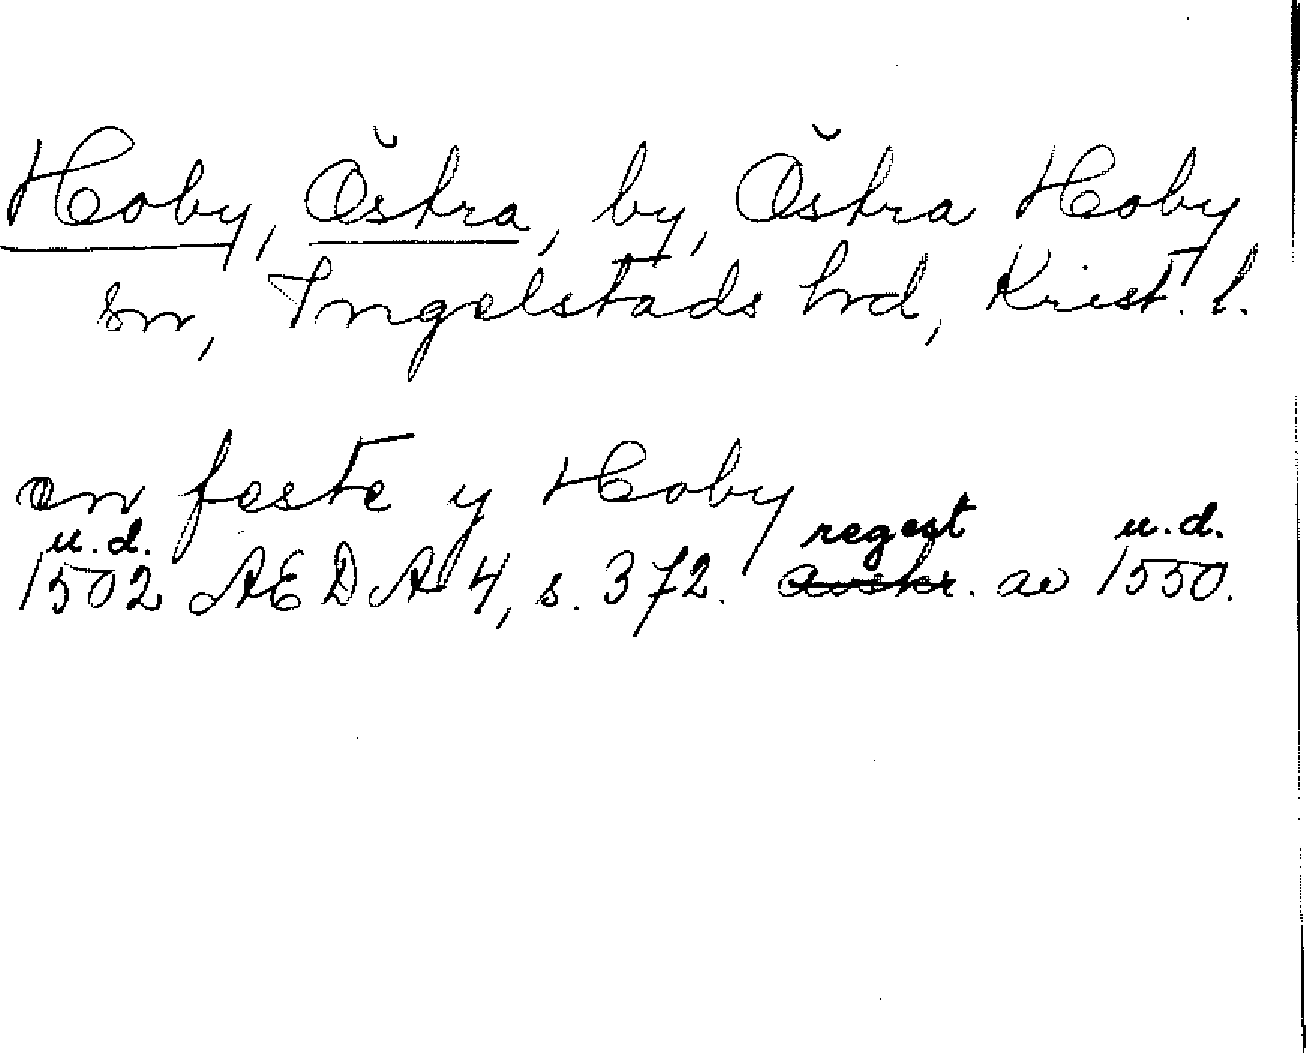 Hoby, Östra, by, Östra Hoby
sn, Ingelstads hrd, Krist. l.
en feste y Hoby
u.d. regest u.d.
1502 AEDA 4, s. 372. avskr. av 1550.